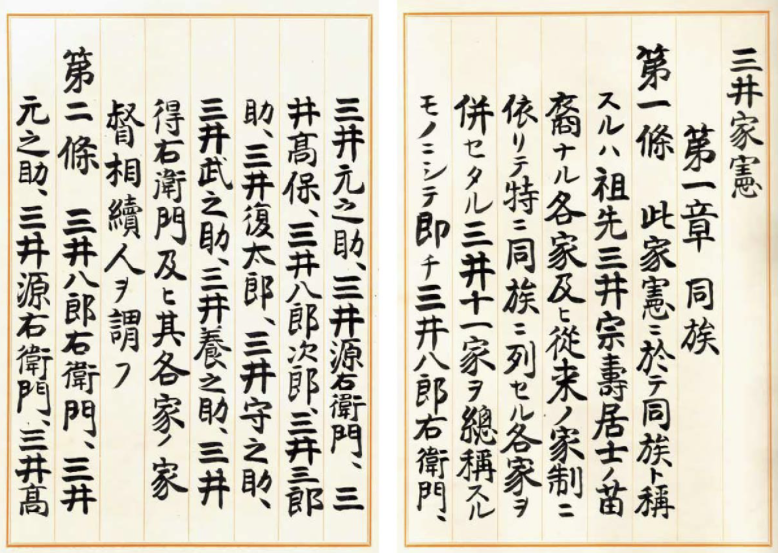 三井家憲
第一章 同族
第一條 此家憲ニ於テ同族ト稱
スルハ祖先三井宗壽居士ノ苗
裔ナル各家及ヒ從来ノ家制ニ
依リテ特ニ同族ニ列セル各家ヲ
併セタル三井十一家ヲ總稱スル
モノニシテ即チ三井八郎右衛門、
三井元之助、三井源右衛門、三
井高保、三井八郎次郎、三井三郎
助、三井復太郎、三井守之助、
三井武之助、三井養之助、三井
得右衛門及ヒ其各家ノ家
督相續人ヲ謂フ
第二條 三井八郎右衛門、三井
元之助、三井源右衛門、三井髙